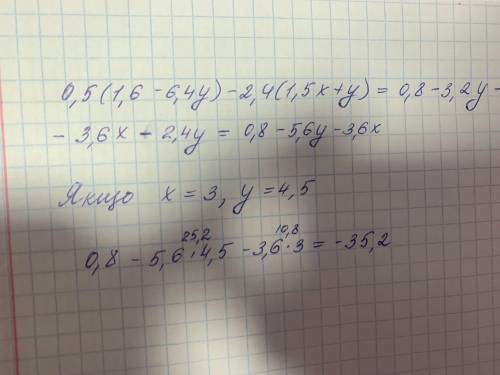 0,5(1,6 - 6,4y) - 2,4(1,5x + y) = 0,8 - 3,2y -
- 3,6x - 2,4y = 0,8 - 5,6y - 3,6x
Якщо x = 3, y = 4,5
25,2 10,8
0,8 - 5,6 · 4,5 - 3,6 · 3 = -35,2